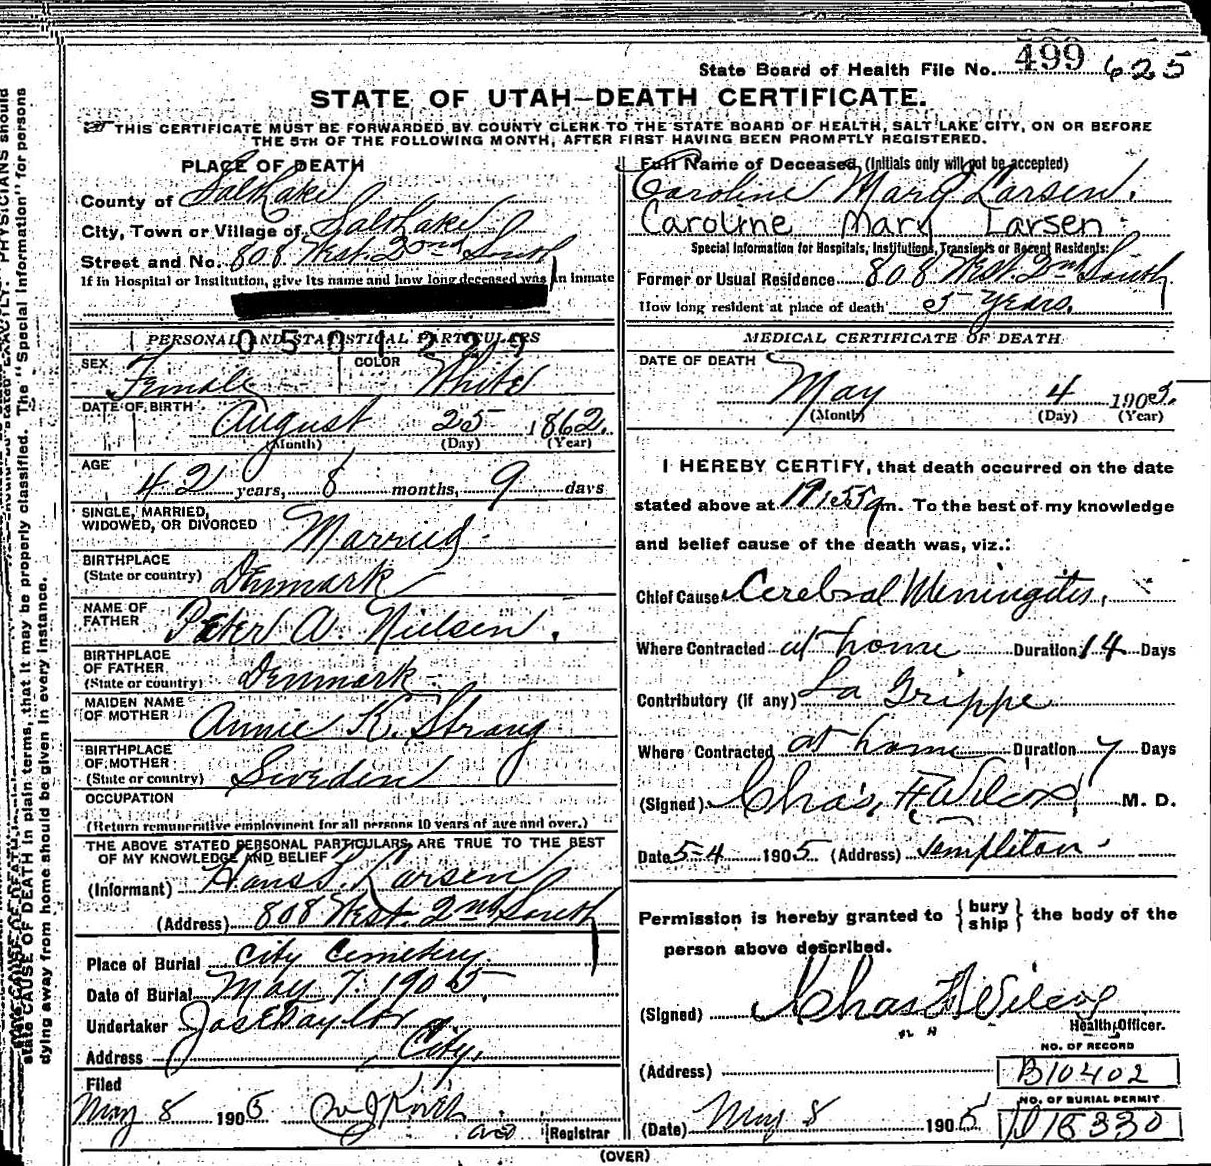 499 625
State Board of Health File No.
STATE OF UTAH—DEATH CERTIFICATE.
THIS CERTIFICATE MUST BE FORWARDED BY COUNTY CLERK TO THE STATE BOARD OF HEALTH, SALT LAKE CITY, ON OR BEFORE
THE 5TH OF THE FOLLOWING MONTH, AFTER FIRST HAVING BEEN PROMPTLY REGISTERED.
PLACE OF DEATH
County of Salt Lake
City, Town or Village of Salt Lake
Street and No. 808 West 2nd South
If in Hospital or Institution, give its name and how long deceased was an inmate
0501227
PERSONAL AND STATISTICAL PARTICULARS
SEX Female COLOR White
DATE OF BIRTH August 25 1862.
(Month) (Day) (Year)
AGE 42 years, 8 months, 9 days
SINGLE, MARRIED,
WIDOWED, OR DIVORCED Married.
BIRTHPLACE
(State or country) Denmark
NAME OF
FATHER Peter A. Nielsen.
BIRTHPLACE
OF FATHER
(State or country) Denmark
MAIDEN NAME
OF MOTHER Annie K. Strang
BIRTHPLACE
OF MOTHER
(State or country) Sweden
OCCUPATION
(Return remunerative employment for all persons 10 years of age and over.)
THE ABOVE STATED PERSONAL PARTICULARS ARE TRUE TO THE BEST
OF MY KNOWLEDGE AND BELIEF
(Informant) Hans L. Larsen
(Address) 808 West 2nd South
Place of Burial City Cemetery.
Date of Burial May 7. 1905
Undertaker Jos E Taylor
Address City.
Filed
May 8 1905 Registrar
Full Name of Deceased, (Initials only will not be accepted)
Caroline Mary Larsen.
Caroline Mary Larsen.
Special Information for Hospitals, Institutions, Transients or Recent Residents:
Former or Usual Residence 808 West 2nd South
How long resident at place of death 5 Years.
MEDICAL CERTIFICATE OF DEATH
DATE OF DEATH
May 4 1905.
(Month) (Day) (Year)
I HEREBY CERTIFY, that death occurred on the date
stated above at m. To the best of my knowledge
and belief cause of the death was, viz.:
Chief Cause Cerebral Meningitis,
Where Contracted at home Duration 14 Days
Contributory (if any) La Grippe
Where Contracted at home Duration 7 Days
(Signed) Chas. F Wilcox M. D.
Date 5-4 1905 (Address) Templeton.
Permission is hereby granted to {bury ship} the body of the
person above described.
(Signed) Chas F Wilcox
Health Officer.
NO. OF RECORD
(Address) B10402
NO. OF BURIAL PERMIT
(Date) May 8 1905
(OVER)
state CAUSE OF DEATH in plain terms, that it may be properly classified. The "Special Information" for persons
dying away from home should be given in every instance.
PHYSICIANS should